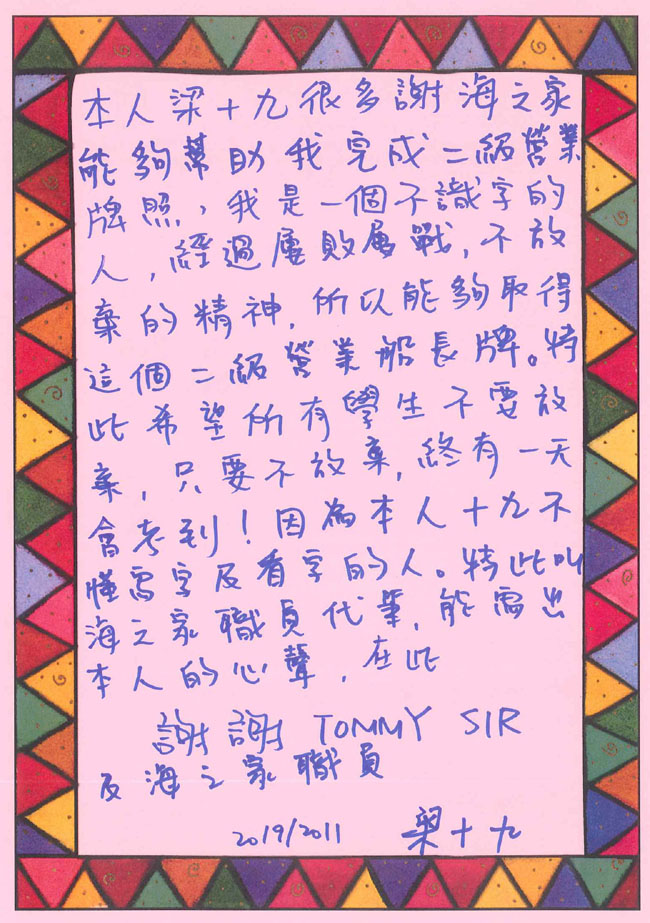 本人梁十九很多謝海之家
能夠幫助我完成二級營業
牌照，我是一個不識字的
人，經過屢敗屢戰，不放
棄的精神，所以能夠取得
這個二級營業船長牌。特
此希望所有學生不要放
棄，只要不放棄，終有一天
會考到！因為本人十九不
懂寫字及看字的人。特此叫
海之家職員代筆，能寫出
本人的心聲，在此
謝謝 TOMMY SIR
及海之家職員
20/9/2011 梁十九